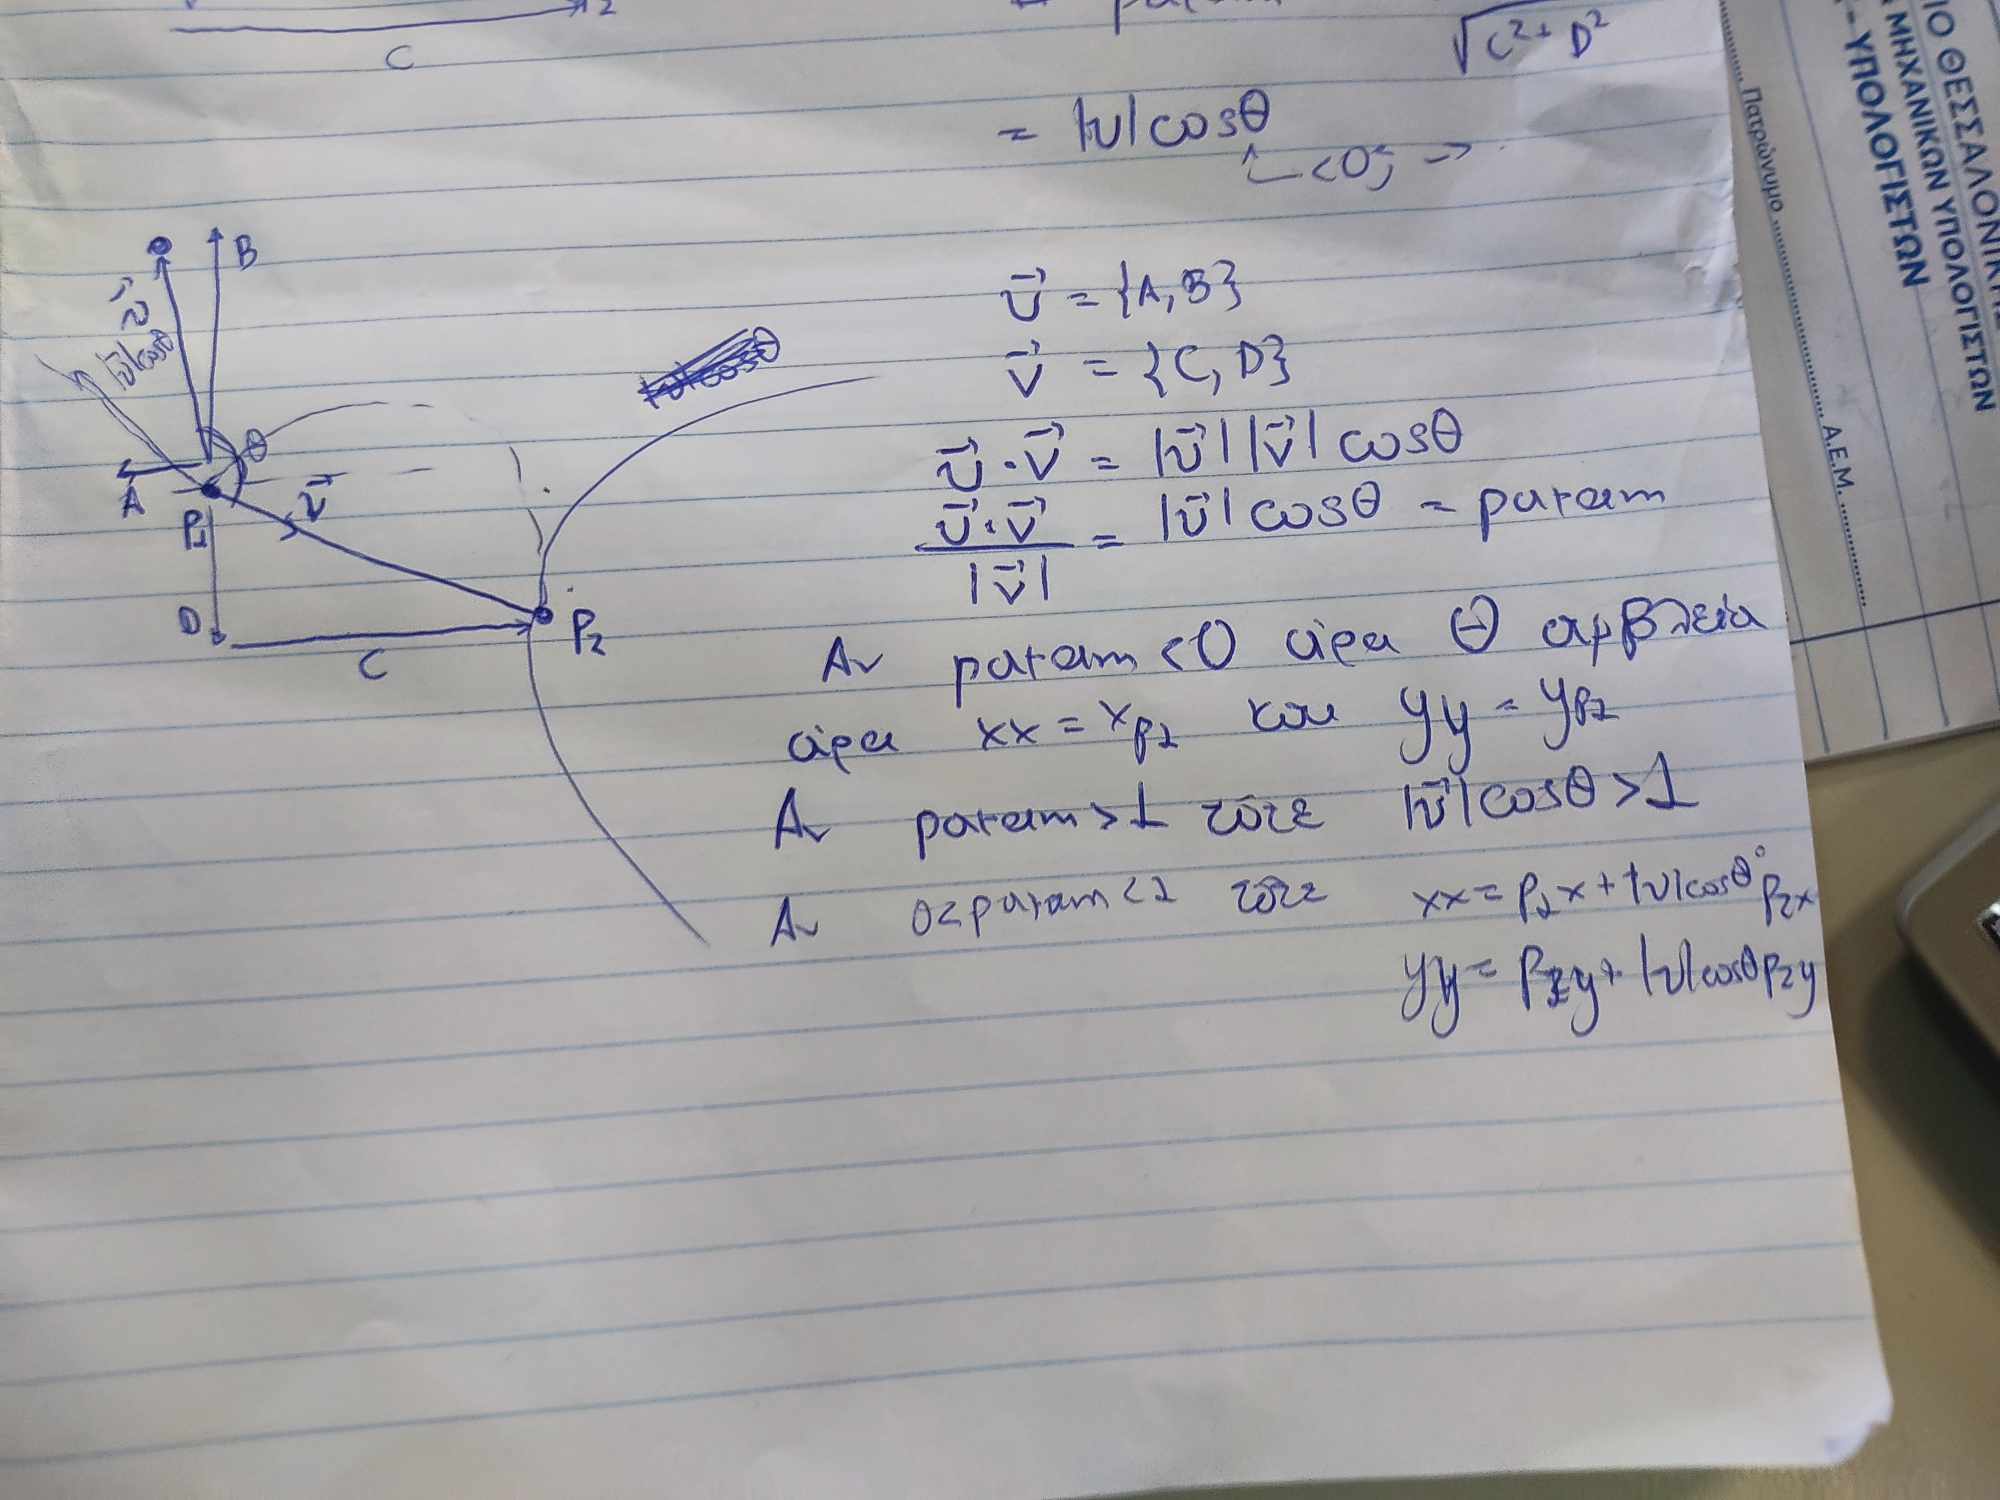 C
√C²+D²
= |υ|cosθ
B
A
θ
v⃗
P1
D
C
P2
|υ⃗|cosθ
υ⃗ = {A, B}
v⃗ = {C, D}
υ⃗·v⃗ = |υ⃗||v⃗|cosθ
υ⃗·v⃗ / |v⃗| = |υ⃗|cosθ = param
Αν param<0 άρα θ αμβλεία
άρα xx = xp1 και yy = yp1
Αν param>1 τότε |υ⃗|cosθ>1
Αν 0<param<1 τότε xx = p1x+|υ|cosθ·p2x
yy = p1y+|υ|cosθp2y
ΙΟ ΘΕΣΣΑΛΟΝΙΚΗΣ
ΜΗΧΑΝΙΚΩΝ ΥΠΟΛΟΓΙΣΤΩΝ
-ΥΠΟΛΟΓΙΣΤΩΝ
Πατρώνυμο
Α.Ε.Μ.